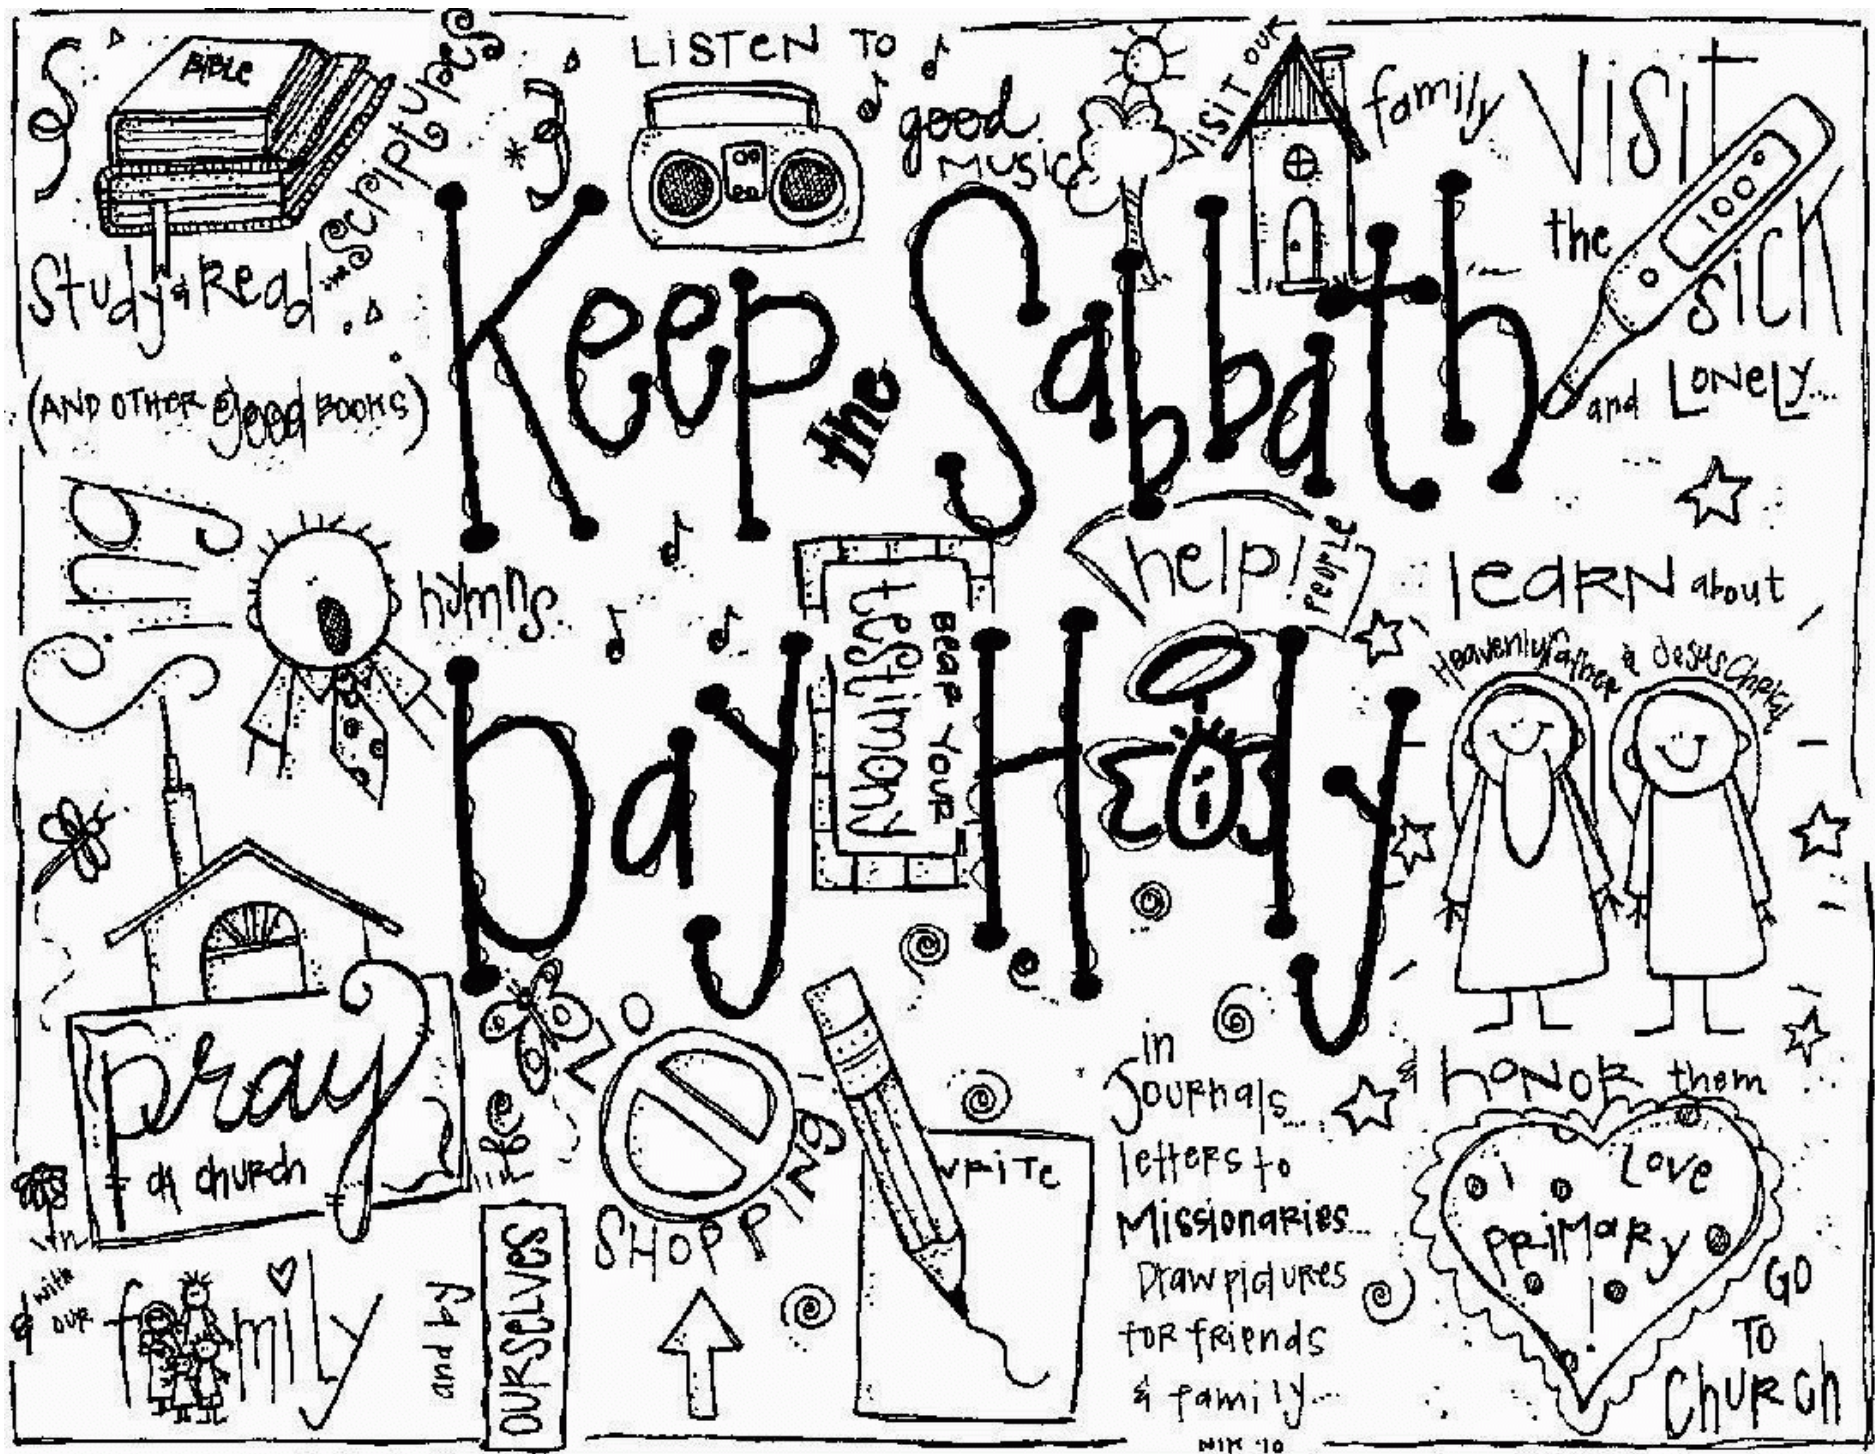 BiBLE
Study & Read
the Scriptures
(AND OTHER good BOOKS)
LiSTEN TO
good
MUSIC
ViSiT OUR
family
ViSiT
the
SiCK
100°
and LONELY...
Keep the Sabbath
Day Holy
SiNG
hymns...
BEAR YOUR
testimony
help!
PEOPLE
LEARN about
Heavenly Father & Jesus Christ
& HONOR them
pray
at church
in
& with
OUR
family
and by
OURSELVES
NO
SHOPPING!
WRiTE
in
Journals...
letters to
Missionaries...
Draw pictures
for friends
& family...
I Love
PRiMARy
!
GO
TO
CHURCH